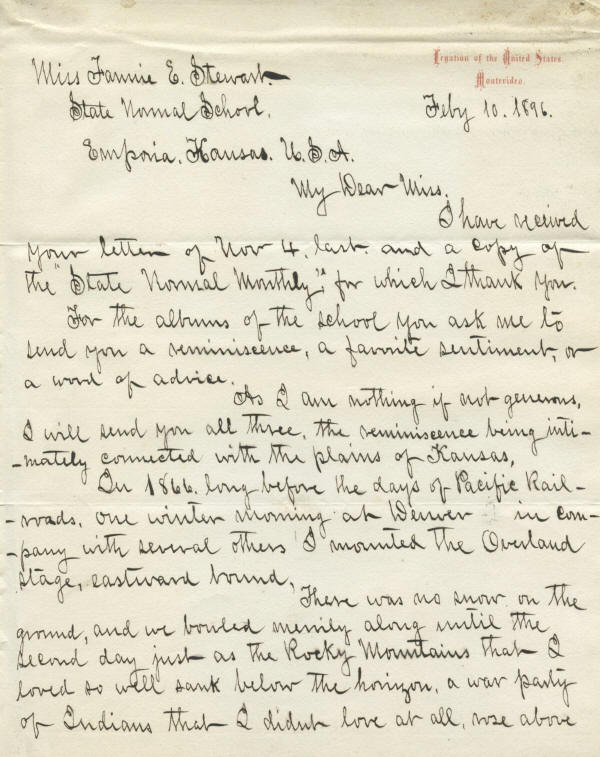 Legation of the United States.
Montevideo.
Miss Fannie E. Stewart.
State Normal School.
Feby 10. 1896.
Emporia. Kansas. U.S.A.
My Dear Miss.
I have recived
your letter of Nov 4. last. and a copy of
the "State Normal Monthly", for which I thank you.
For the albums of the school you ask me to
send you a reminiscence, a favorite sentiment, or
a word of advice.
As I am nothing if not generous,
I will send you all three, the reminiscence being inti-
-mately connected with the plains of Kansas,
In 1866. long before the days of Pacific Rail-
-roads, one winter morning at Denver in com-
-pany with several others I mounted the Overland
stage, eastward bound,
There was no snow on the
ground, and we bowled merrily along until the
second day just as the Rocky Mountains that I
loved so well sank below the horizon, a war party
of Indians that I didnt love at all, rose above